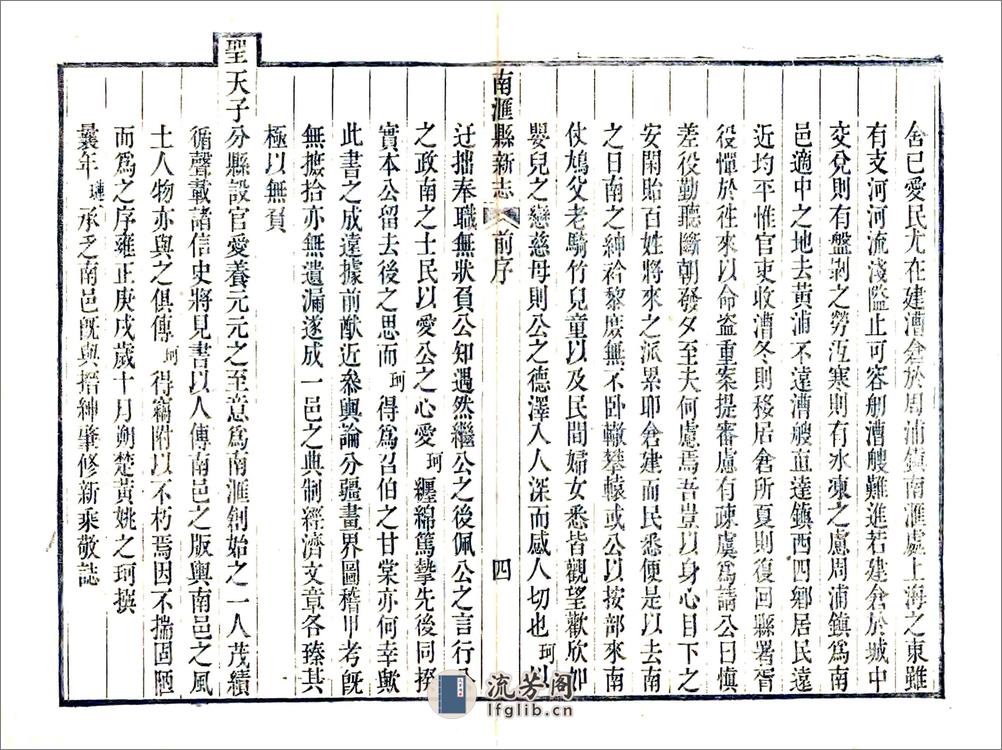 舍已愛民尤在建漕倉於周浦鎮南滙處上海之東雖
有支河河流淺隘止可容舠漕艘難進若建倉於城中
交兌則有盤剥之勞沍寒則有冰凍之慮周浦鎮爲南
邑適中之地去黃浦不遠漕艘直達鎮西四鄉居民遠
近均平惟官吏收漕冬則移居倉所夏則復回縣署胥
役憚於徃來以命盗重案提審慮有疎虞爲請公曰愼
差役勤聽斷朝發夕至夫何慮焉吾豈以身心目下之
安閑貽百姓將來之派累耶倉建而民悉便是以去南
之日南之紳衿黎庶無不卧轍攀轅或公以按部來南
仗鳩父老騎竹兒童以及民間婦女悉皆觀望歡欣如
嬰兒之戀慈母則公之德澤人人深而感人切也珂以
南滙縣新志 前序 四
迂拙奉職無狀負公知遇然繼公之後佩公之言行公
之政南之士民以愛公之心愛珂纒綿篤摯先後同揆
實本公留去後之思而珂得爲召伯之甘棠亦何幸歟
此書之成遠據前猷近參輿論分疆畫界圖稽甲考旣
無摭拾亦無遺漏遂成一邑之典制經濟文章各臻其
極以無負
聖天子分縣設官愛養元元之至意爲南滙創始之一人茂績
循聲載諸信史將見書以人傳南邑之版輿南邑之風
土人物亦與之俱傳珂得竊附以不朽焉因不揣固陋
而爲之序雍正庚戌歲十月朔楚黃姚之珂撰
曩年璉承乏南邑旣與搢紳肇修新乘敬誌
流芳阁
lfglib.cn